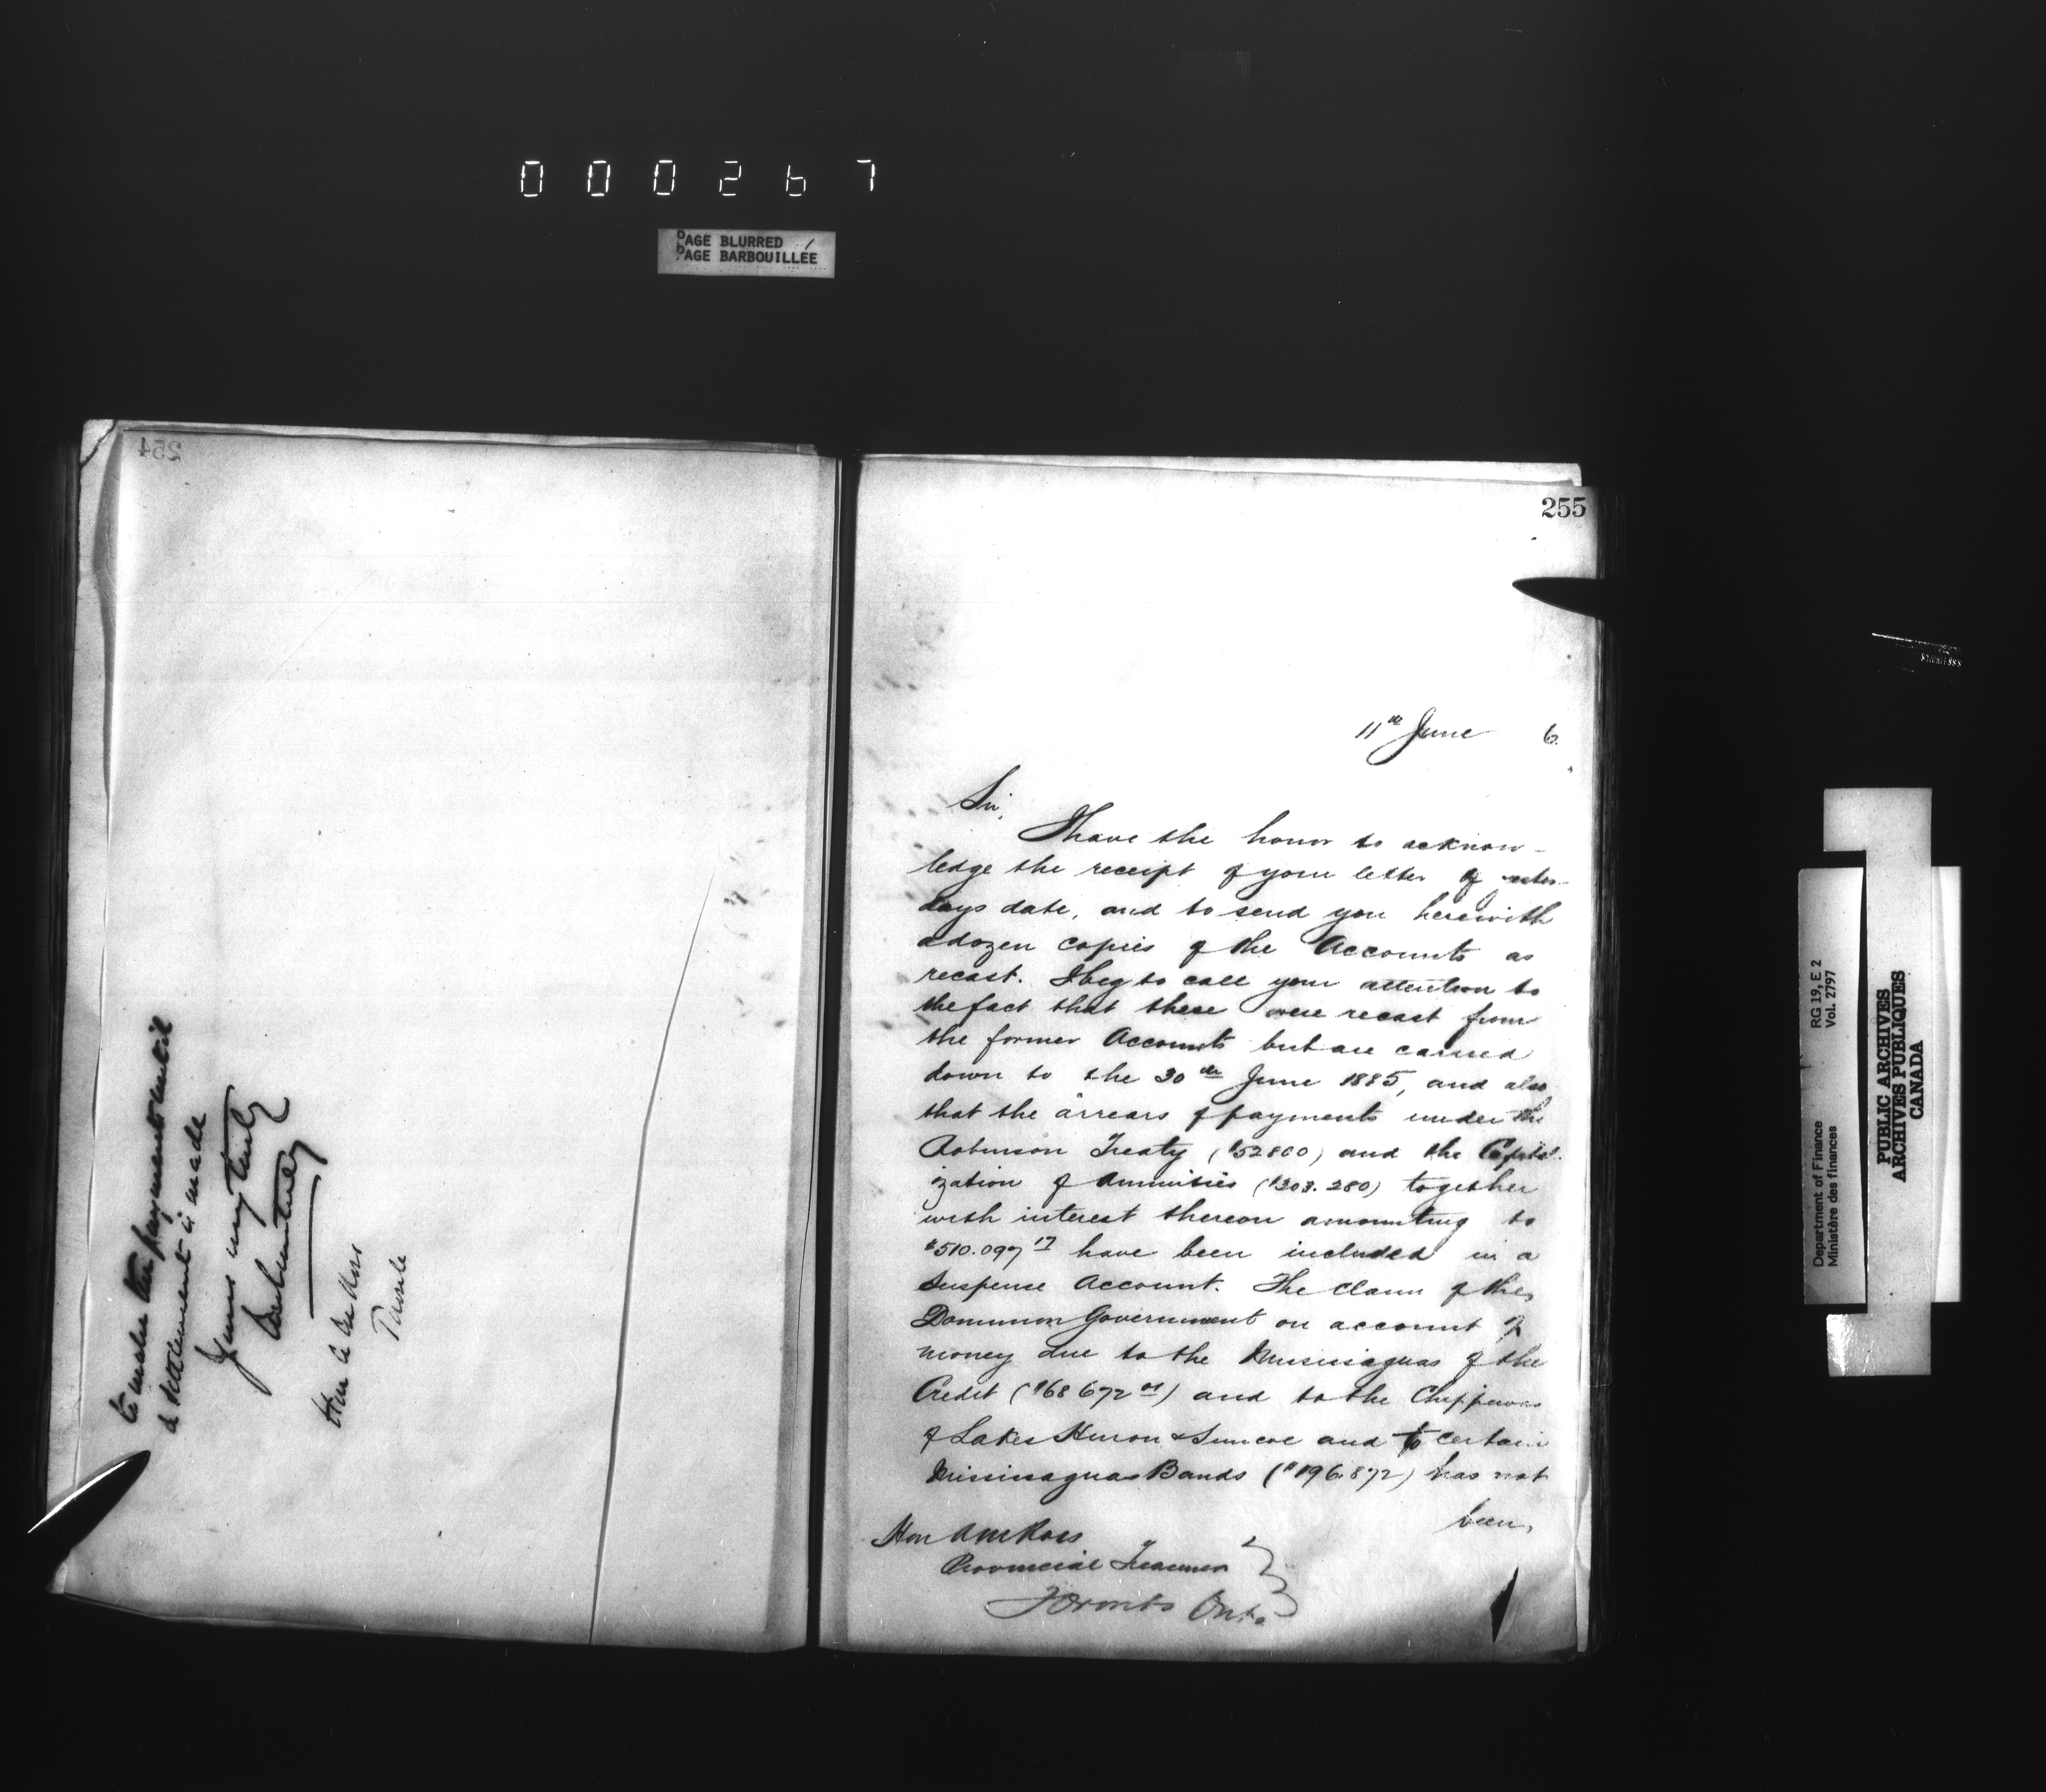 000267
PAGE BLURRED
PAGE BARBOUILLÉE
254
to make the payment until
a settlement is made
Yours very truly
Hon A M Ross
Toronto
255
11th June 6
Sir,
I have the honor to acknow-
ledge the receipt of your letter of yester-
days date, and to send you herewith
a dozen copies of the Accounts as
recast. I beg to call your attention to
the fact that these were recast from
the former Accounts but are carried
down to the 30th June 1885, and also
that the arrears of payments under the
Robinson Treaty ($52800) and the Capital-
ization of Annuities ($303.280) together
with interest thereon amounting to
$510.097 17 have been included in a
Suspense Account. The claim of the
Dominion Government on account of
money due to the Mississaguas of the
Credit ($68672 01) and to the Chippewas
of Lakes Huron & Simcoe and to certain
Mississaguas Bands ($196.872) has not
been,
Hon A M Ross
Provincial Treasurer
Toronto Onto
Department of Finance
Ministère des finances
RG 19, E 2
Vol. 2797
PUBLIC ARCHIVES
ARCHIVES PUBLIQUES
CANADA